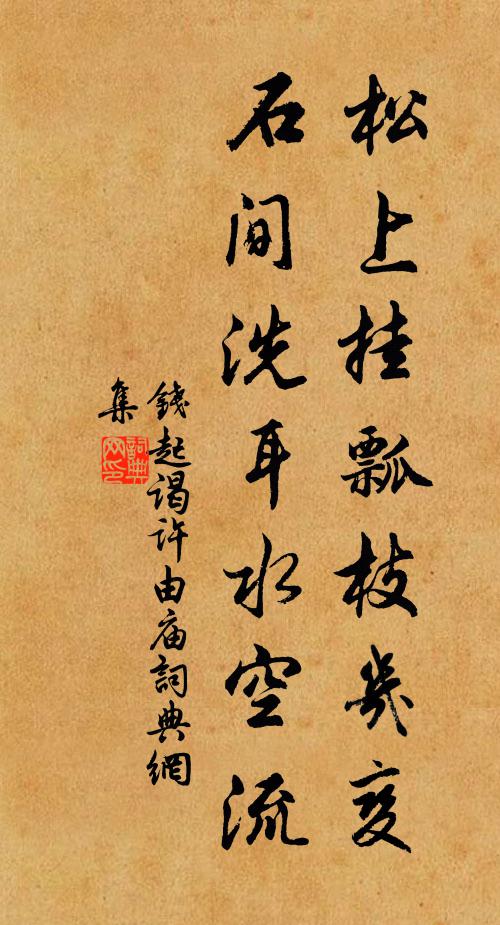 松上挂瓢枝几变
石间洗耳水空流
錢起谒许由庙詞典網
集
詞典网印